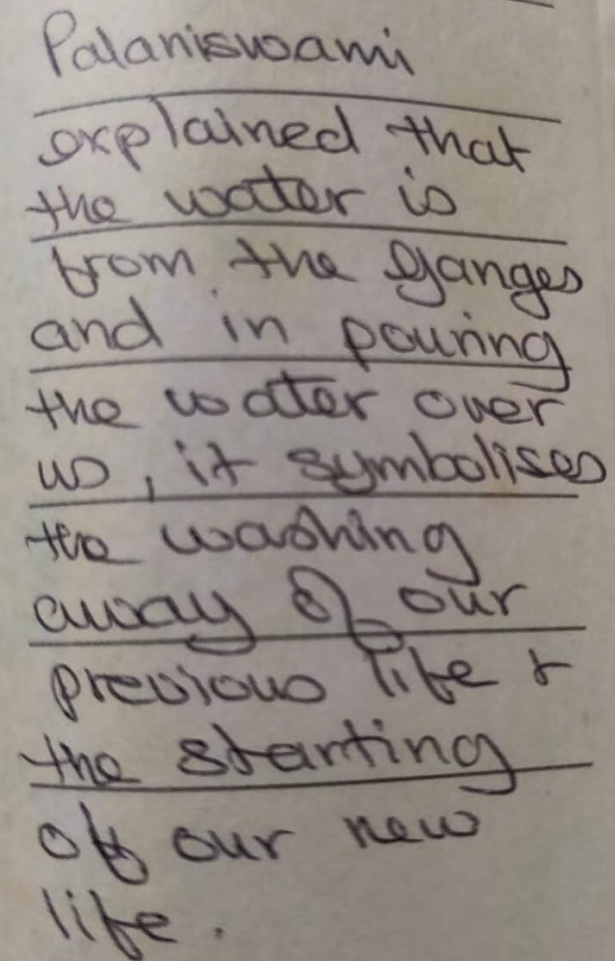 Palaniswami
explained that
the water is
from the Ganges
and in pouring
the water over
us, it symbolises
the washing
away of our
previous life &
the starting
off our new
life.